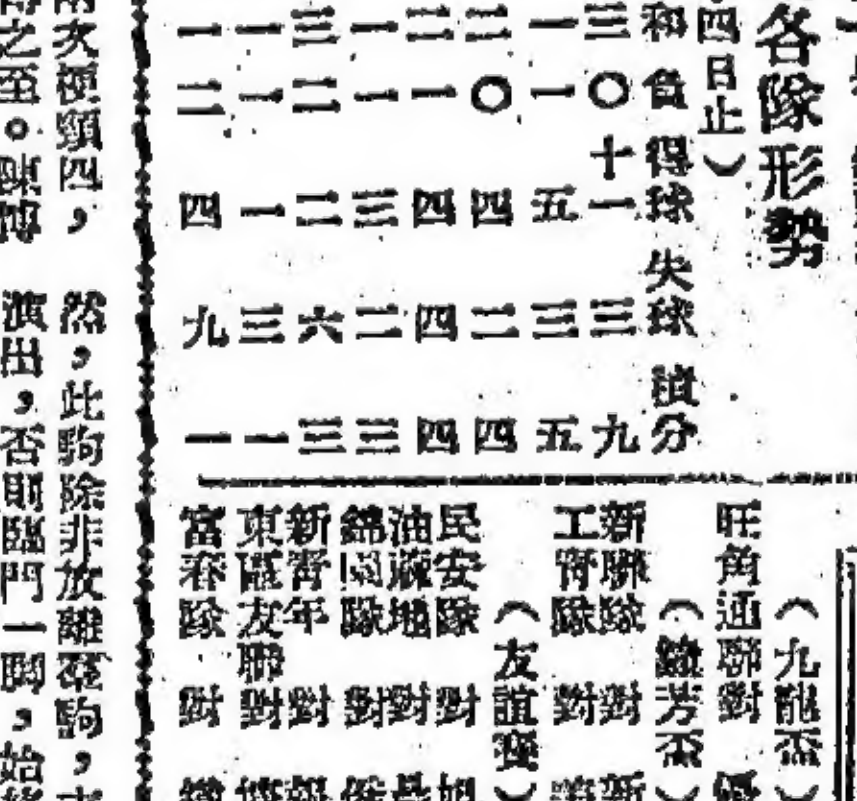 各隊形勢
四日止）
和 負 得球 失球 積分
三 〇 十一 三 九
一 一 五 三 五
二 〇 四 二 四
二 一 四 四 四
一 一 三 二 三
三 二 二 六 三
一 一 一 三 一
一 二 四 九 一
（九龍盃）
旺角通聯對
芳盃）
新聯隊 對 新
工青隊 對
（友誼
民安隊 對 旭
油蔴地 對
錦園隊 對
新青年 對
東區友聯 對
富春隊 對
次梗頸四，
然，此駒除非放離羣駒，
之至。陳
演出，否則臨門一關，始